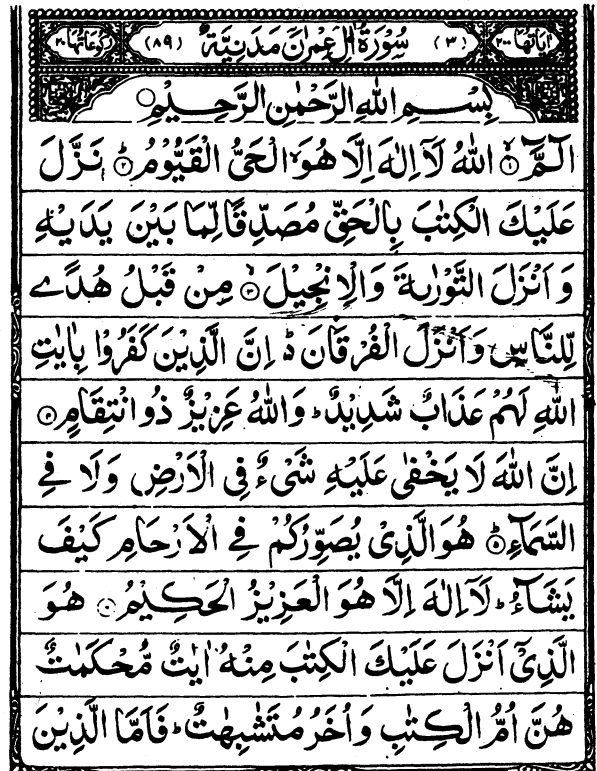 اٰیَاتُهَا ٢٠٠ (٣) سُوْرَةُ اٰلِ عِمْرٰنَ مَدَنِیَّةٌ (٨٩) رُکُوْعَاتُهَا ٢٠
بِسْمِ اللّٰهِ الرَّحْمٰنِ الرَّحِیْمِ
الٓمَّٓ ۙ‏﴿۱﴾ اللّٰهُ لَاۤ اِلٰهَ اِلَّا هُوَ ۙ الْحَیُّ الْقَیُّوْمُ ؕ‏﴿۲﴾ نَزَّلَ
عَلَیْكَ الْكِتٰبَ بِالْحَقِّ مُصَدِّقًا لِّمَا بَیْنَ یَدَیْهِ
وَ اَنْزَلَ التَّوْرٰىةَ وَ الْاِنْجِیْلَ ۙ‏﴿۳﴾ مِنْ قَبْلُ هُدًے
لِّلنَّاسِ وَ اَنْزَلَ الْفُرْقَانَ ؕ اِنَّ الَّذِیْنَ كَفَرُوْا بِاٰیٰتِ
اللّٰهِ لَهُمْ عَذَابٌ شَدِیْدٌ ؕ وَ اللّٰهُ عَزِیْزٌ ذُوانْتِقَامٍ ﴿۴﴾
اِنَّ اللّٰهَ لَا یَخْفٰی عَلَیْهِ شَیْءٌ فِی الْاَرْضِ وَ لَا فِے
السَّمَآءِ ؕ‏﴿۵﴾ هُوَ الَّذِیْ یُصَوِّرُكُمْ فِے الْاَرْحَامِ كَیْفَ
یَشَآءُ ؕ لَاۤ اِلٰهَ اِلَّا هُوَ الْعَزِیْزُ الْحَكِیْمُ ﴿۶﴾ هُوَ
الَّذِیْۤ اَنْزَلَ عَلَیْكَ الْكِتٰبَ مِنْهُ اٰیٰتٌ مُّحْكَمٰتٌ
هُنَّ اُمُّ الْكِتٰبِ وَ اُخَرُ مُتَشٰبِهٰتٌ ؕ فَاَمَّا الَّذِیْنَ